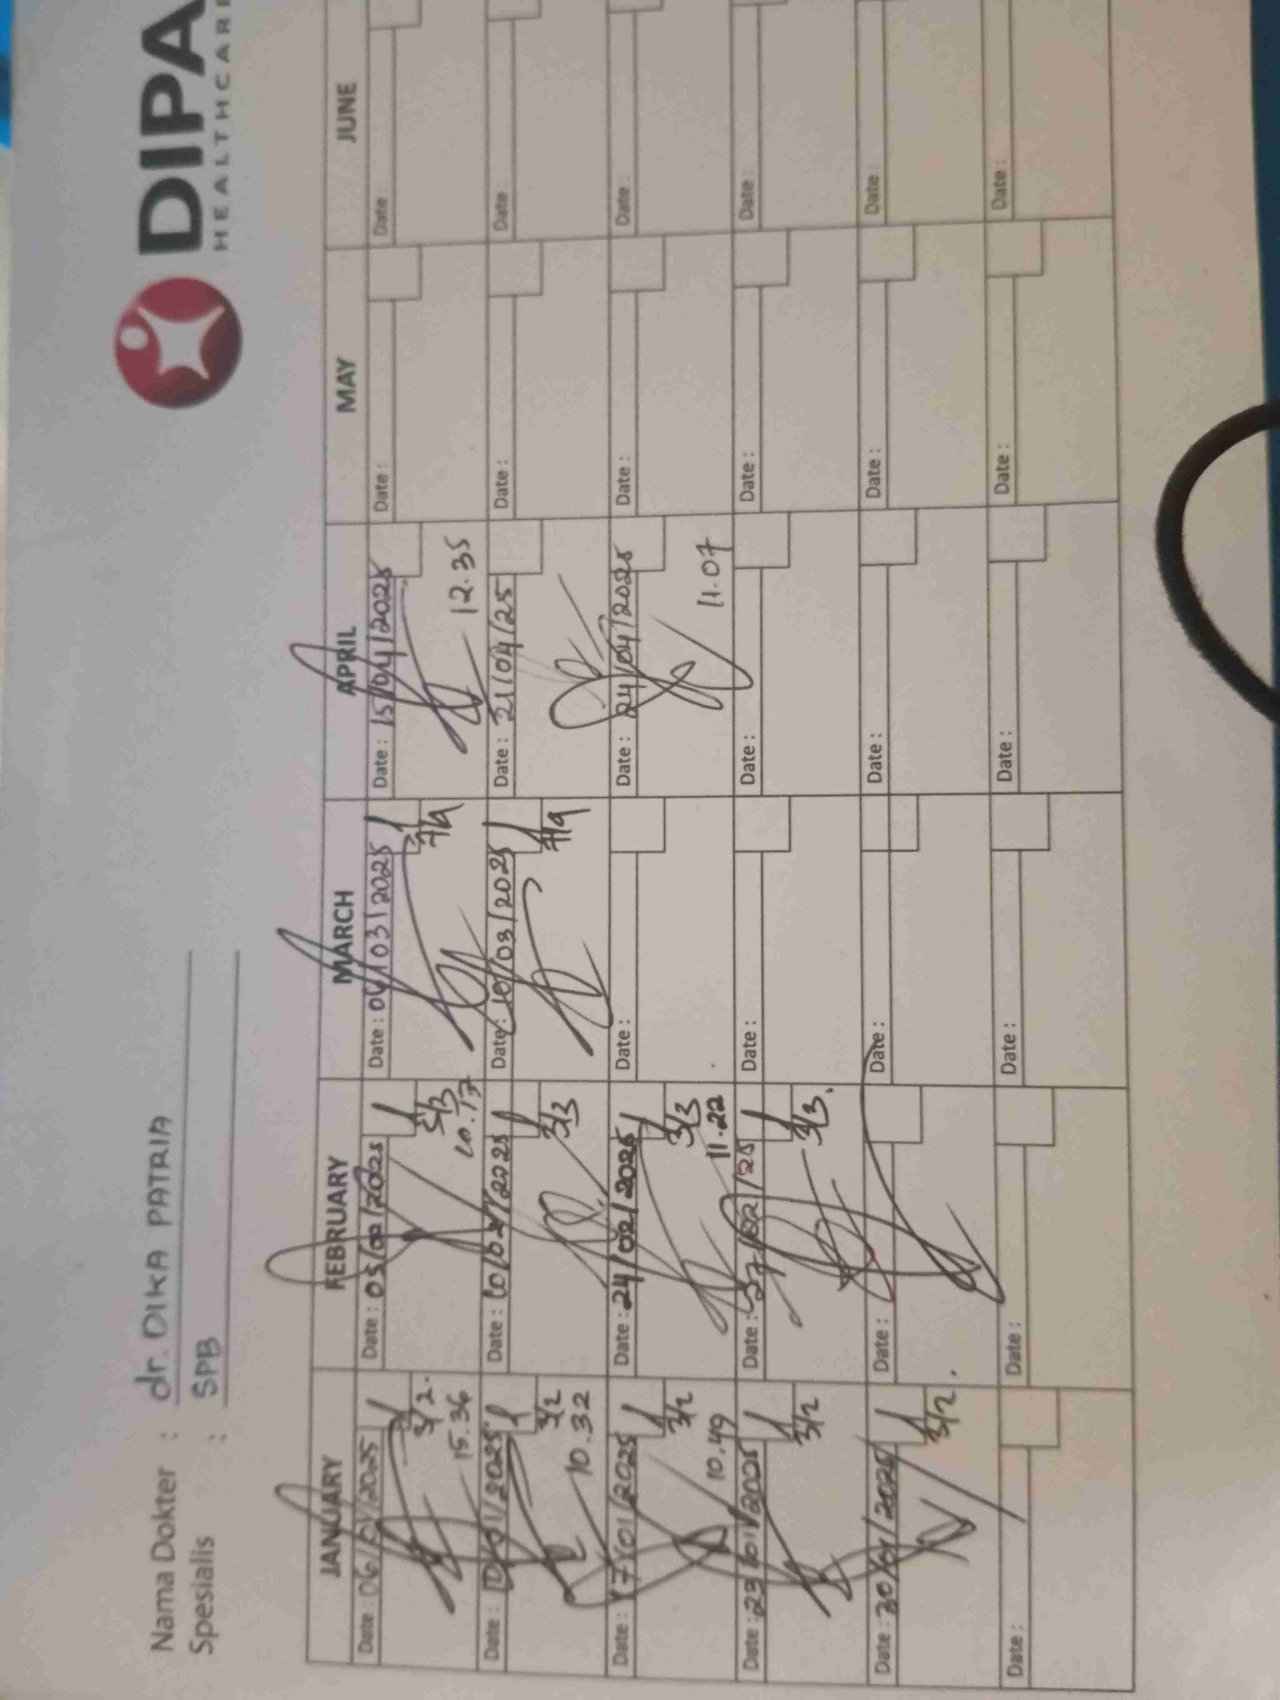 DIPA
HEALTHCARE
Nama Dokter : dr. DIKA PATRIA
Spesialis : SPB
JANUARY FEBRUARY MARCH APRIL MAY JUNE
Date : 06/01/2025 Date : 05/02/2025 Date : 04/03/2025 Date : 15/04/2025 Date : Date :
3/2. 3/3 7/4
15.36 10.17 12.35
Date : 10/01/2025 Date : 10/02/2025 Date : 10/03/2025 Date : 21/04/25 Date : Date :
3/2 3/3 7/4
10.32
Date : 17/01/2025 Date : 24/02/2025 Date : Date : 24/04/2025 Date : Date :
3/2 3/3
10.49 11.22 11.07
Date : 23/01/2025 Date : 27/02/25 Date : Date : Date : Date :
3/2 3/3.
Date : 30/01/2025 Date : Date : Date : Date : Date :
3/2.
Date : Date : Date : Date : Date : Date :